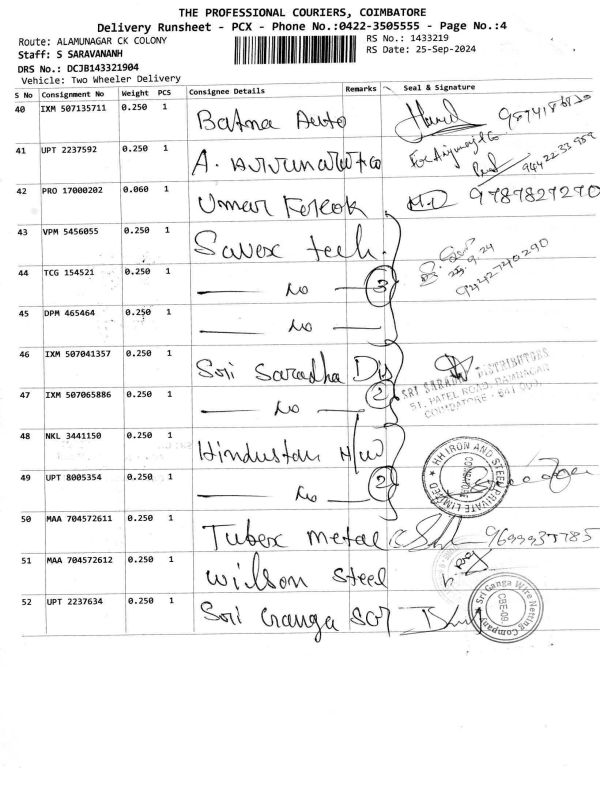 THE PROFESSIONAL COURIERS, COIMBATORE
Delivery Runsheet - PCX - Phone No.:0422-3505555 - Page No.:4
Route: ALAMUNAGAR CK COLONY
RS No.: 1433219
Staff: S SARAVANANH
RS Date: 25-Sep-2024
DRS No.: DCJB143321904
Vehicle: Two Wheeler Delivery
S No Consignment No Weight PCS Consignee Details Remarks Seal & Signature
40 IXM 507135711 0.250 1 Batna Auto
41 UPT 2237592 0.250 1 A.
9442233959
42 PRO 17000202 0.060 1 Umar 9787827270
43 VPM 5456055 0.250 1 Savex tech.
25.9.24
9442740290
44 TCG 154521 0.250 1 — Do — 3
45 DPM 465464 0.250 1 — Do —
46 IXM 507041357 0.250 1 Sri Saradha Dis
SRI SARADHA DISTRIBUTORS
51, PATEL ROAD, RAMNAGAR
COIMBATORE - 641 009.
47 IXM 507065886 0.250 1 — Do — 2
48 NKL 3441150 0.250 1 Hindustan H/W
HH IRON AND STEEL PRIVATE LIMITED
COIMBATORE
49 UPT 8005354 0.250 1 — Do — 2
50 MAA 704572611 0.250 1 Tubex Metal
51 MAA 704572612 0.250 1 Wilson Steel
52 UPT 2237634 0.250 1 Sri Ganga
Sri Ganga Wire Netting Company
CBE-09